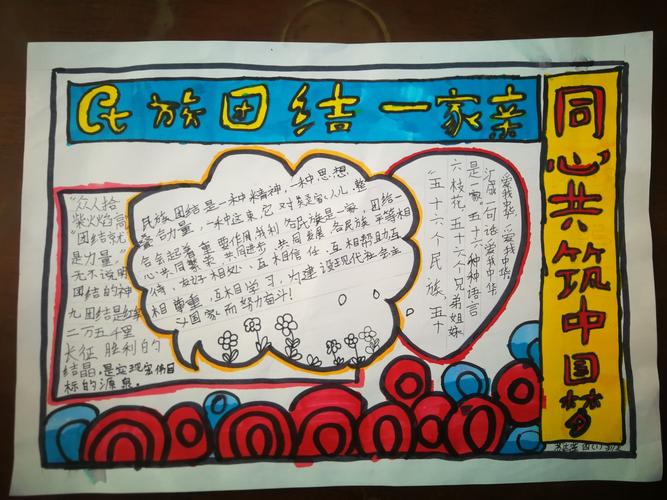 民族团结一家亲
同心共筑中国梦
"众人拾
柴火焰高
团结就
是力量"
无不说明
团结的神
九团结是红军
二万五千里
长征 胜利的
结晶,是实现宏伟目
标的源泉。
民族团结是一种精神,一种思想
一种约束,它对
会起着重要作用我利 各民族是一家,团结一
心共同繁荣 共同进步 共同发展 各民族 平等相
待,友好相处,互相信任,互相帮助互
相尊重,互相学习,为建设现代社会主
义国家而努力奋斗!
"五十六个民族,五十
六枝花,五十六个兄弟姐妹
是一家,五十六种语言
汇成一句话,爱我中华
爱我中华,爱我中华